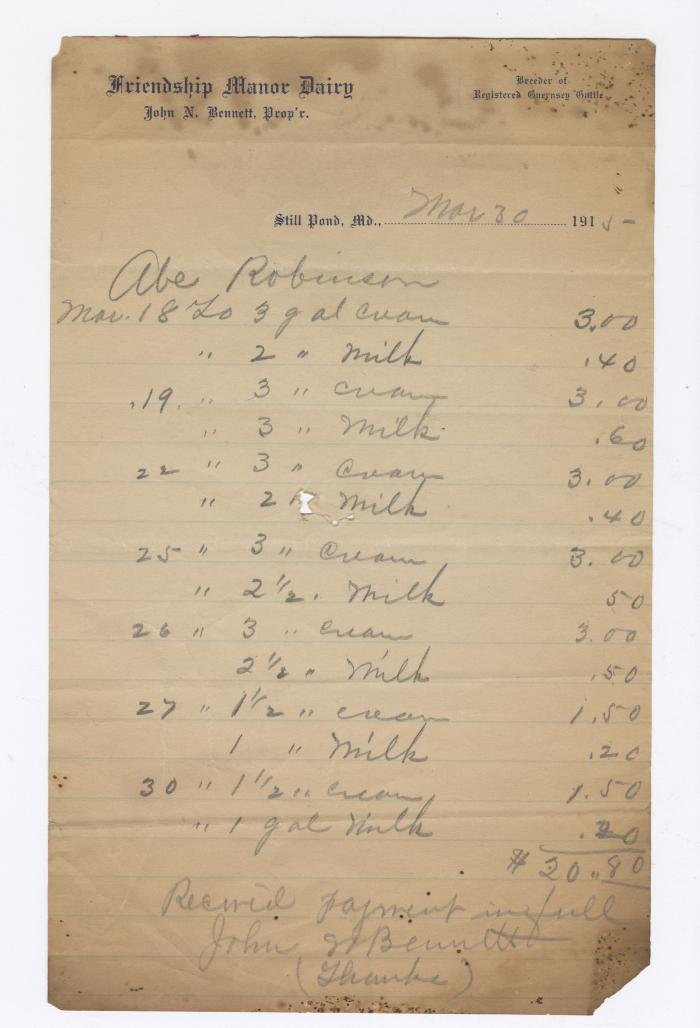 Friendship Manor Dairy
John N. Bennett, Prop'r.
Breeder of
Registered Guernsey Cattle
Still Pond, Md., Mar 30 1915-
Abe Robinson
Mar. 18 To 3 gal Cream 3.00
" 2 " Milk .40
19 " 3 " Cream 3.00
" 3 " Milk .60
22 " 3 " Cream 3.00
" 2 " Milk .40
25 " 3 " Cream 3.00
" 2 1/2 " Milk 50
26 " 3 " Cream 3.00
2 1/2 " Milk .50
27 " 1 1/2 " Cream 1.50
1 " Milk .20
30 " 1 1/2 " Cream 1.50
" 1 gal Milk .20
$ 20.80
Received payment in full
John N Bennett
(Thanks)